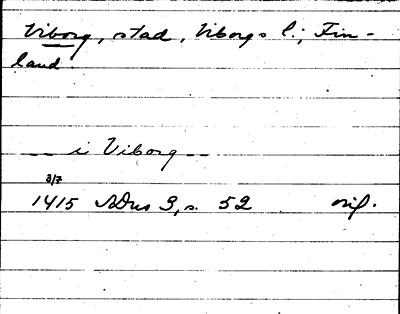 Viborg, stad, Viborgs l., Fin-
land.
-- i Viborg --
3/7
1415 SDns 3, s. 52 orig.